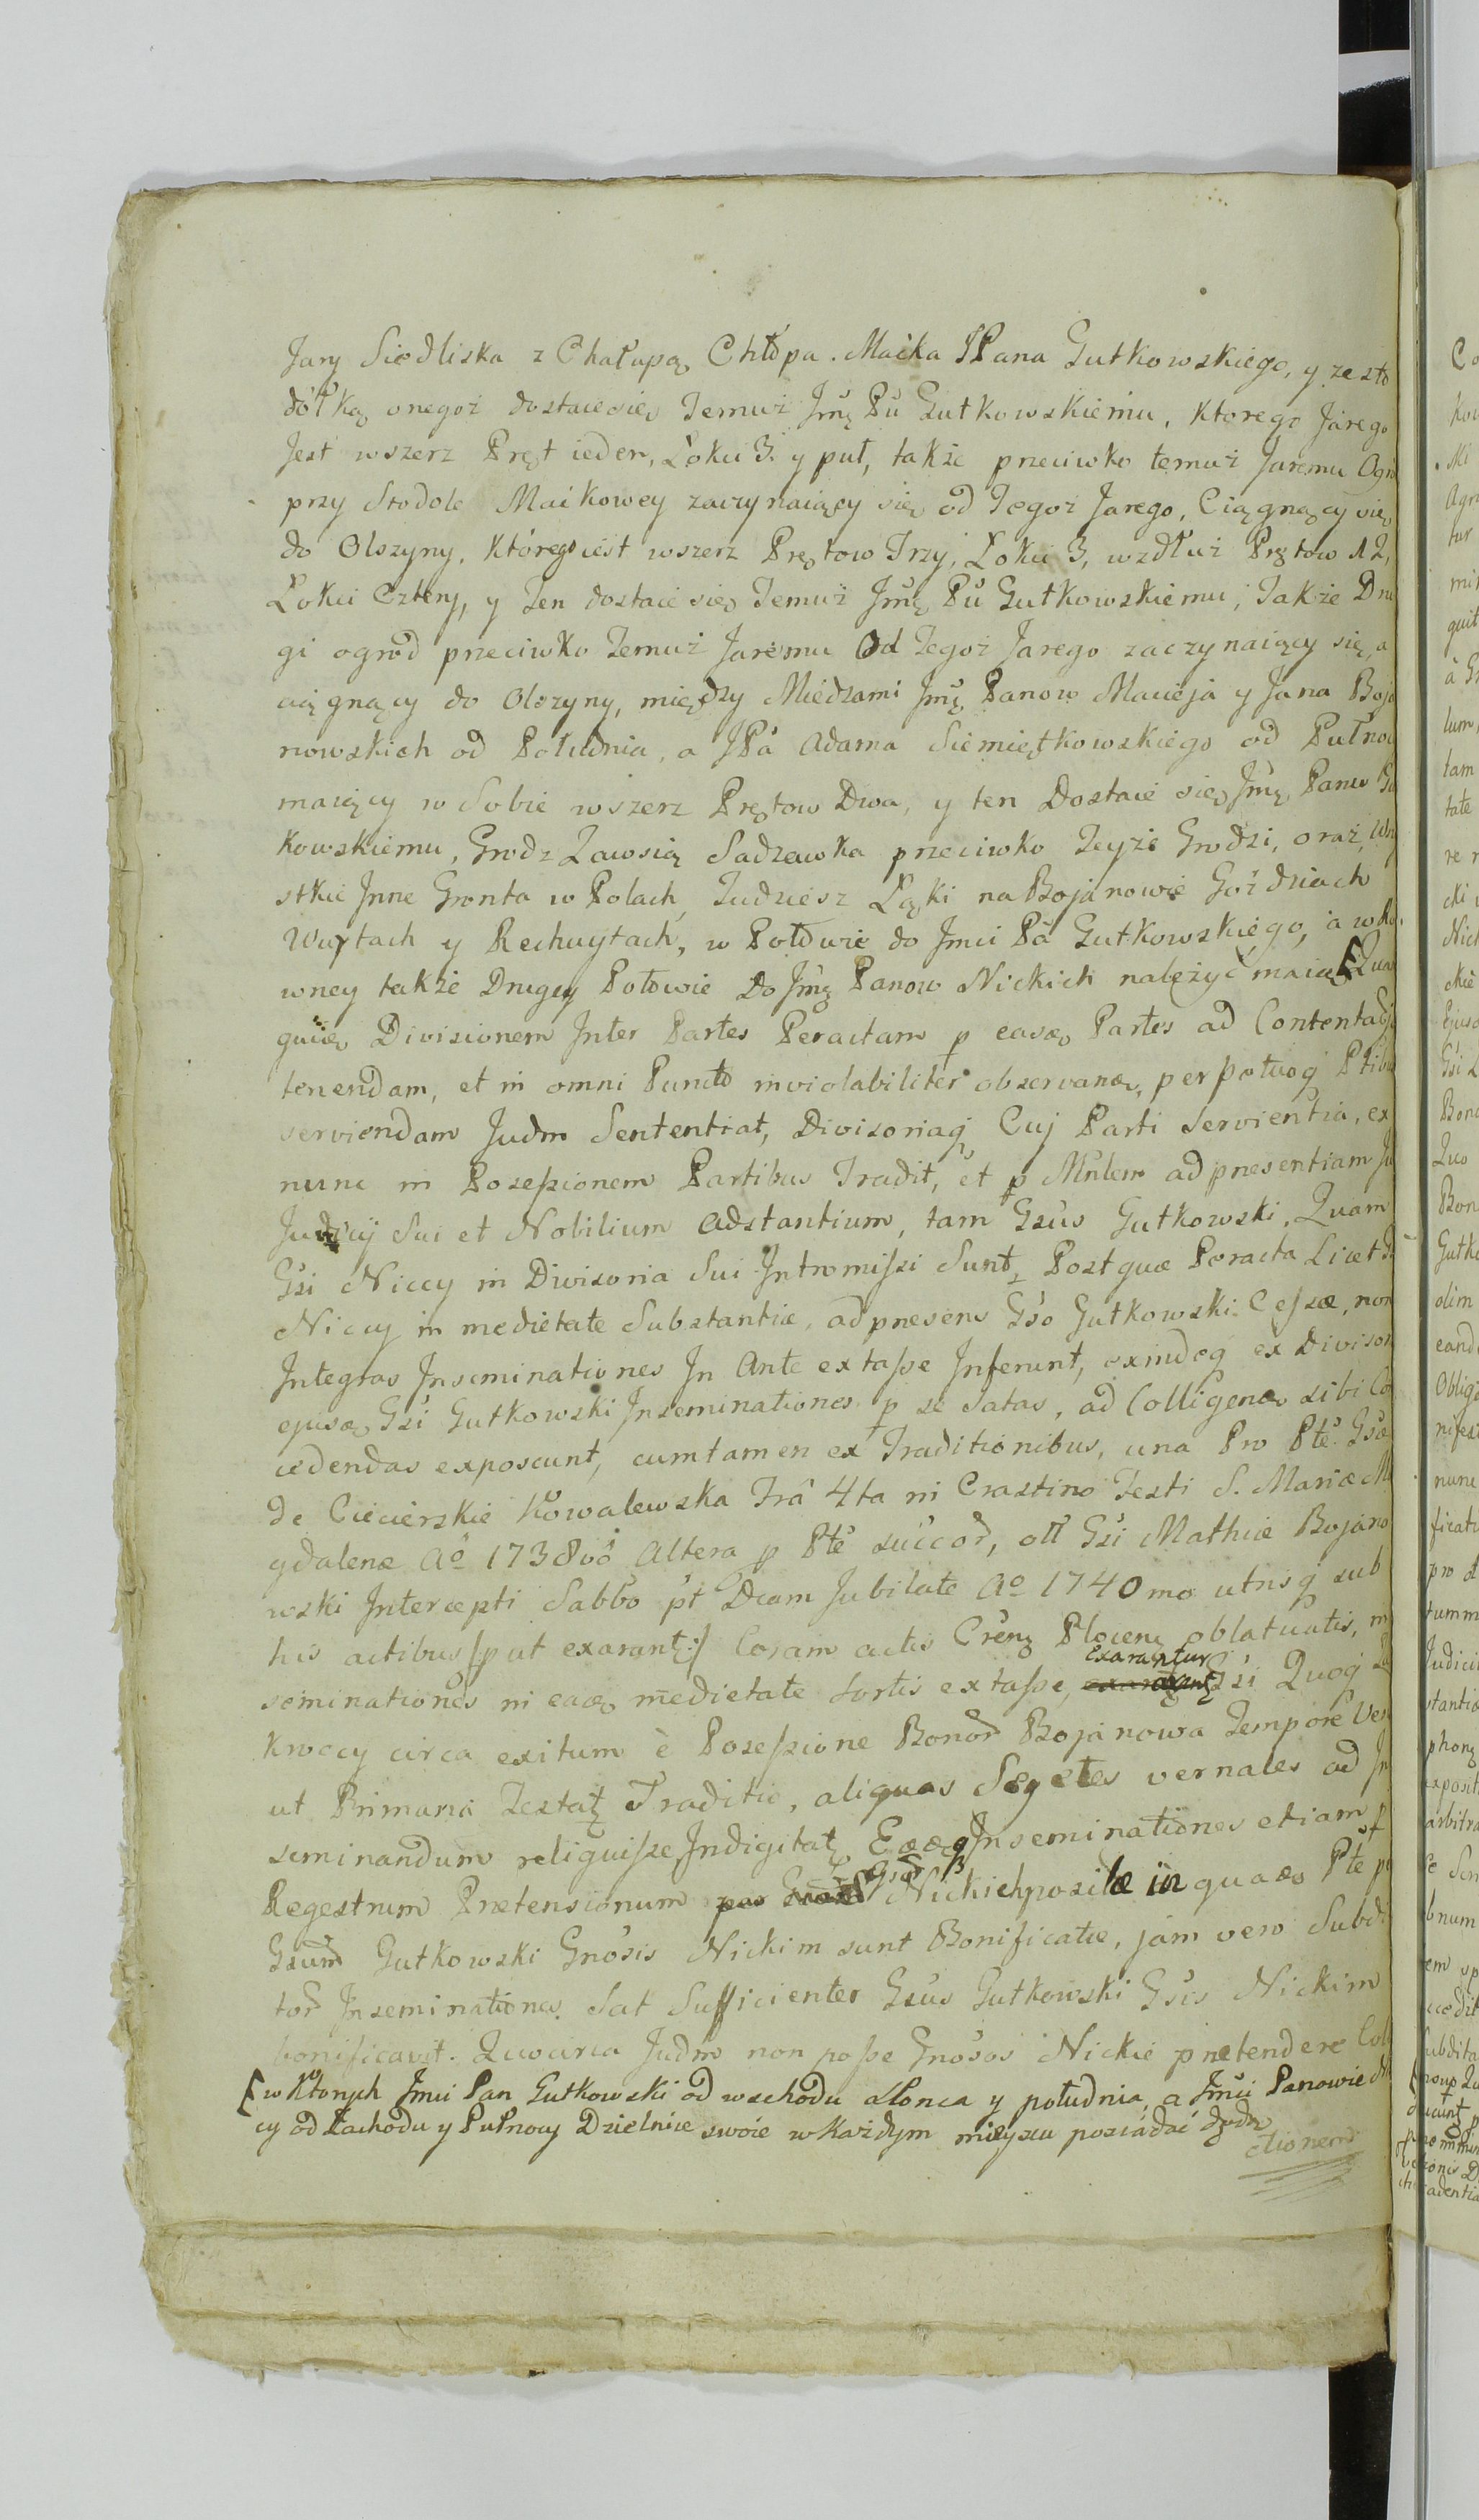 Jary Siedliska z Chałupą Chłopa Maćka JPana Gutkowskiego, y ze sto
dółką onegoż dostaie się Temuż Jmę Pu Gutkowskiemu, ktorego Jarego
Jest wszerz Pręt ieden, Łokci 3. y puł, także przeciwko temuż Jaremu Ogro
przy Stodole Maćkowey zaczynaiący się od Tegoż Jarego, Ciągnący się
do Olszyny, którego iest wszerz Prętow Trzy, Łokci 3, wzdłuż Prętow 12,
Łokci Cztery, y Ten dostaie się Temuż Jmę Pu Gutkowskiemu, Także Dru
gi ogrod przeciwko Temuż Jaremu Od Tegoż Jarego zaczynaiący się, a
ciągnący do Olszyny, między Miedzami Jmę Panow Macieja y Jana Boja
nowskich od Południa, a JPa Adama Siemiętkowskiego od Pułnoc
maiący w Sobie wszerz Prętow Dwa, y ten Dostaie się Jmę Panu Gu
kowskiemu, Grodz Zawsią Sadzawka przeciwko Teyże Grodzi, oraz, Wszy
stkie Jnne Gronta w Polach, Tudziesz Łąki na Bojanowie Goździach
Wuytach y Rechuytach, w Połowie do Jmci Pa Gutkowskiego, a w Ro
wney także Drugiey Połowie Do Jmę Panow Nickich należyć maią [Qua
Divisionem Inter Partes Peractam p easdo Partes ad Contenta
tenendam, et in omni Puncto inviolabiliter observandam, perpetuoq Ptibu
serviendam Judm Sententiat, Divisoriaq Cuj Parti Servientia, ex
nunc in Posessionem Partibus Tradit, et p Mnlem ad presentiam Ju
Judicij Sui et Nobilium Adstantium, tam Gsus Gutkowski, Quam
Gsi Niccy in Divisoria Sui Intromissi Sunt, Post quæ Peracta Licet G
Niccy in medietate Substantiæ, ad presens Gso Gutkowski Cessæ, non
Integras Inseminationes In Ante extasse Inferunt, exindeq ex Divisor
Gsi Gutkowski Inseminationes p se Satas, ad Colligendo sibi Co
cedendas exposcunt, cum tamen ex Traditionibus, una Pro Pte Gsæ
de Ciecierskie Kowalewska Fra 4ta in Crastino Festi S. Mariæ Ma
gdalenæ Ao 1738vo Altera p Pte succor, olł Gsi Mathiæ Bojano
wski Intercepti Sabbo pt Dcam Jubilate Ao 1740mo utrisq sub
his actibus [put exarantę:/ Coram actis Crenę Plocenę oblatuatis, in
seminationes in medietate Sortis extasse, exarantur Gsi Quoq
Krocy circa exitum è Posessione Bonor Bojanowa Tempore Ver
ut Primaria Testatę Traditio, aliquas Segetes vernales ad In
seminandum reliquisse Indigitatę Inseminationes etiam
Regestrum Prætensionum Nickich positæ in Pte p
Gsum Gutkowski Gnosis Nickim sunt Bonificatæ, jam vero Subdi
tor Inseminationes Sat Sufficienter Gsus Gutkowski Gsis Nickim
bonificavit. Quocirca Judm non posse Gnosos Nickie prætendere Coll
[w Ktorych Jmci Pan Gutkowski od wschodu słonca y południa, a Jmci Panowie Ni
cy od Zachodu y Pułnocy Dzielnice swoie w każdym mieyscu posiadać będą
ctionem